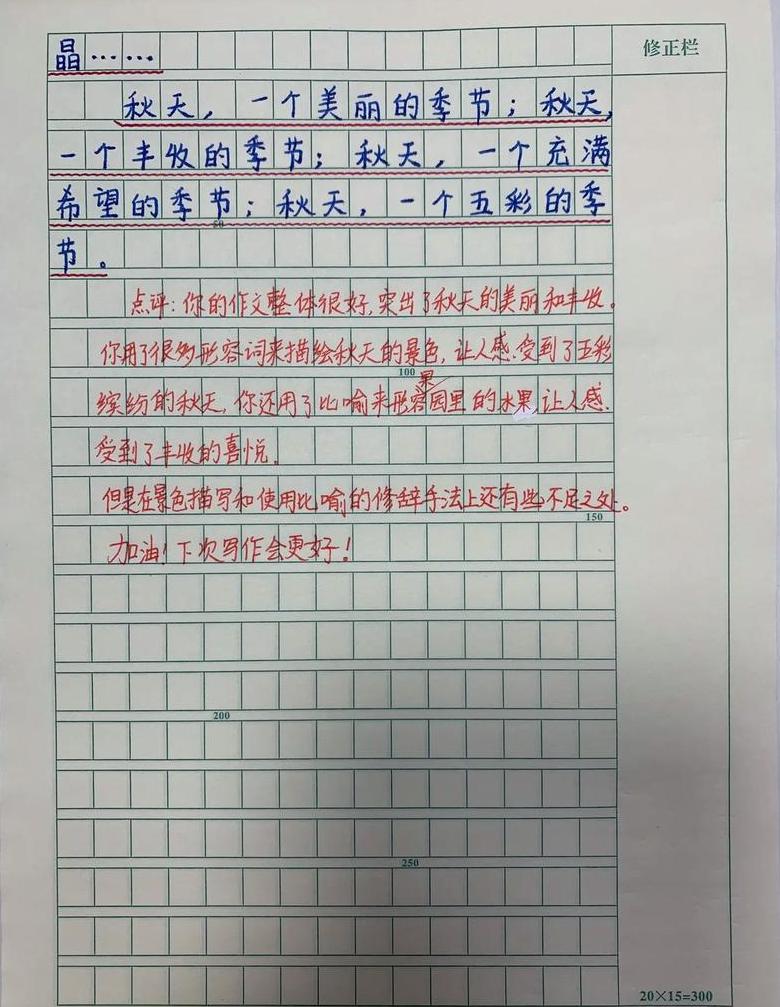 晶……
修正栏
秋天，一个美丽的季节；秋天，
一个丰收的季节；秋天，一个充满
希望的季节；秋天，一个五彩的季
50
节。
点评：你的作文整体很好，突出了秋天的美丽和丰收。
你用了很多形容词来描绘秋天的景色，让人感受到了五彩
100
缤纷的秋天，你还用了比喻来形容果园里的水果，让人感
受到了丰收的喜悦。
但是在景色描写和使用比喻的修辞手法上还有些不足之处。
150
加油！下次写作会更好！
200
250
20×15=300